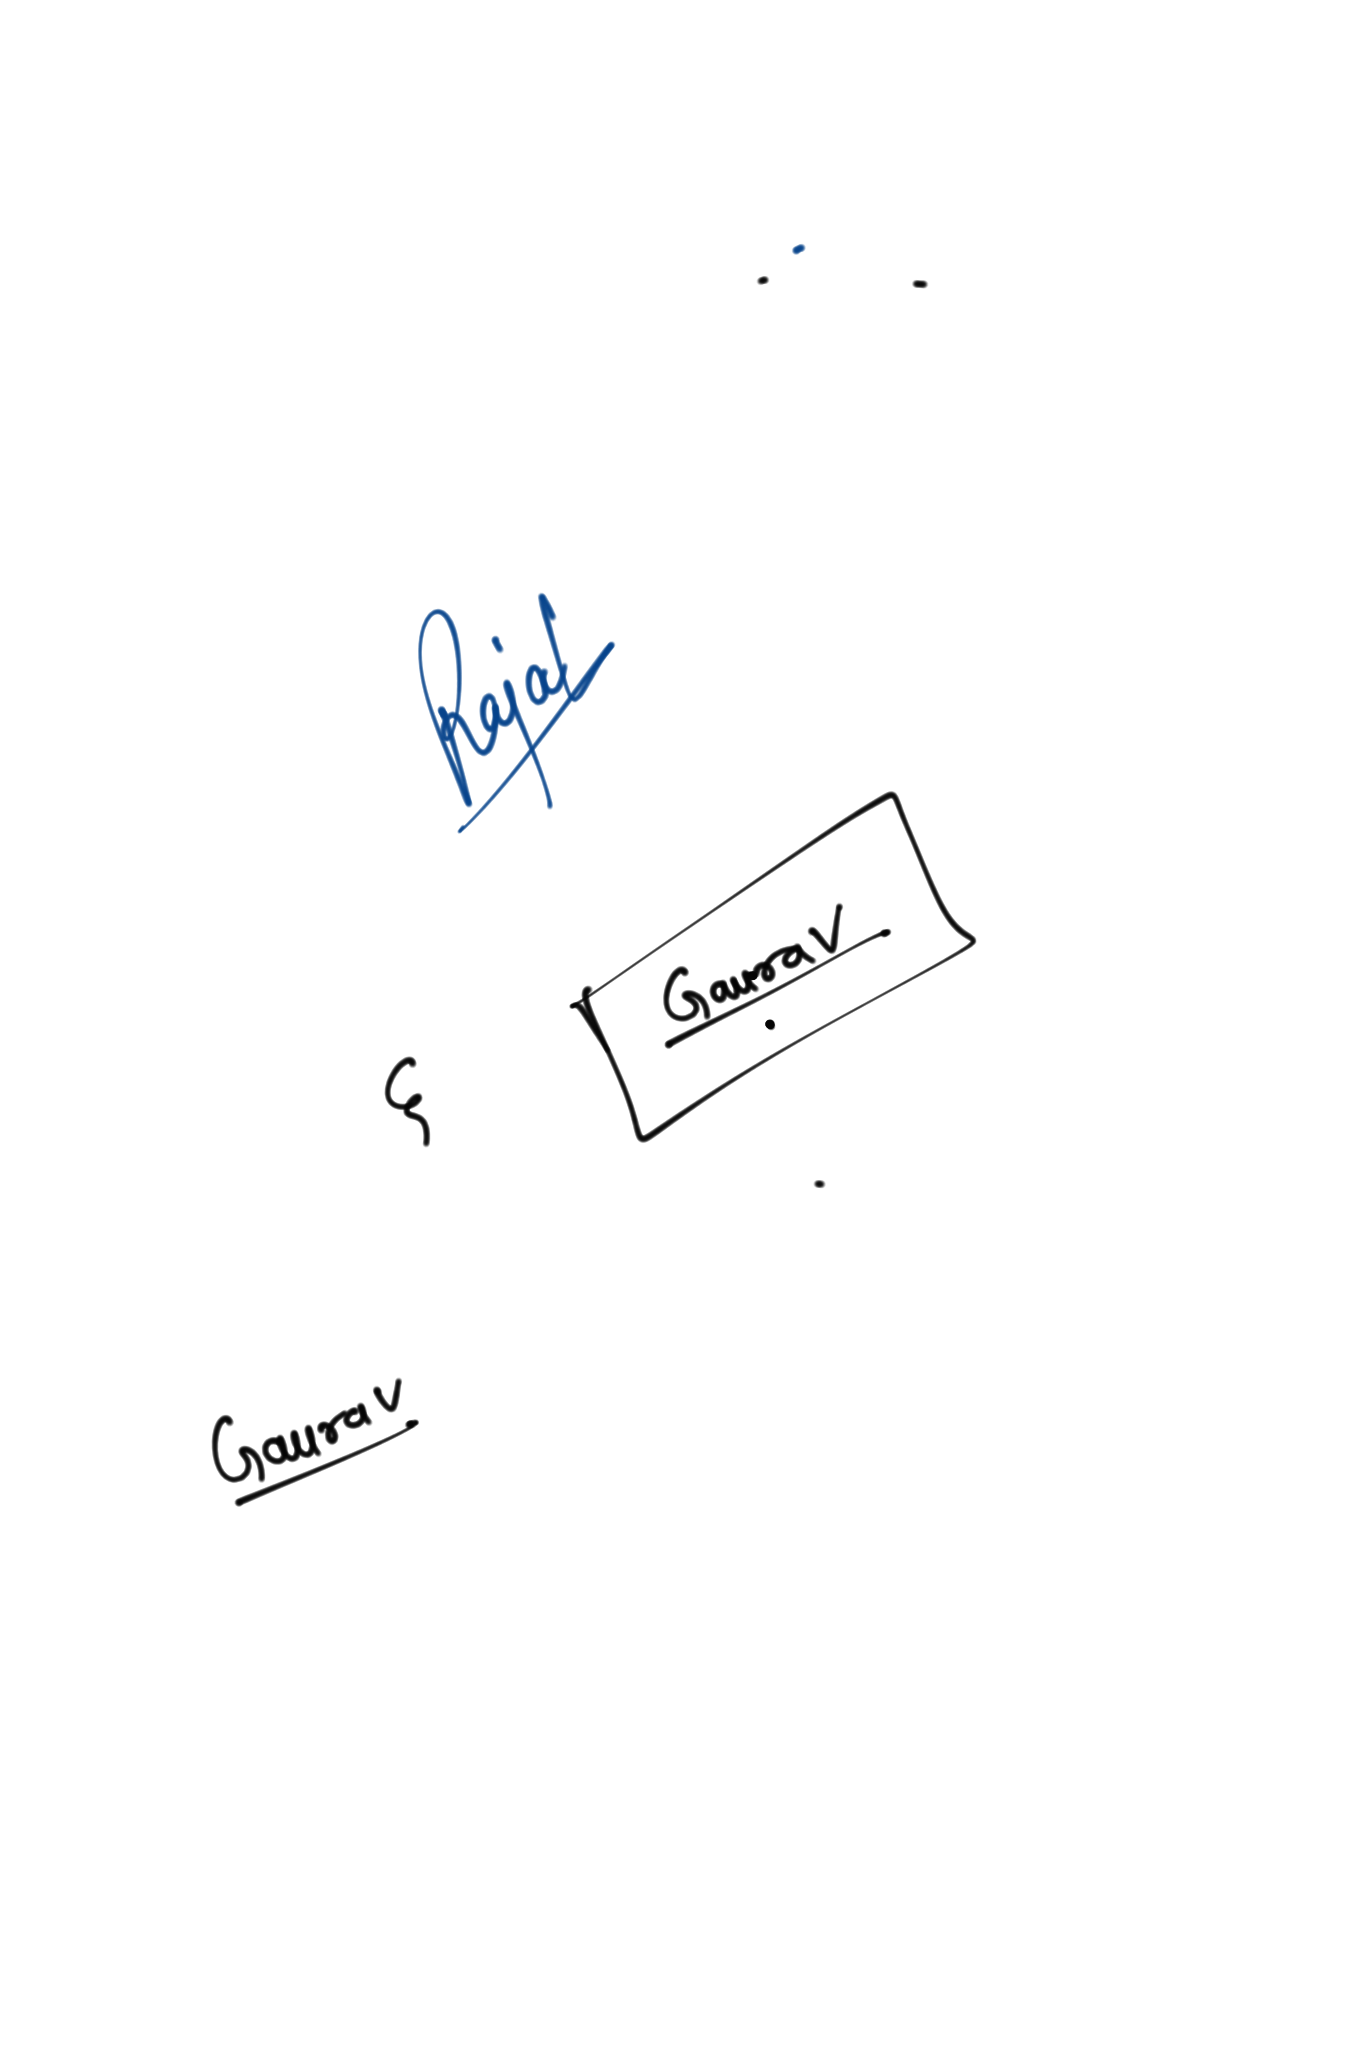 Rajat
Gaurav
G
Gaurav